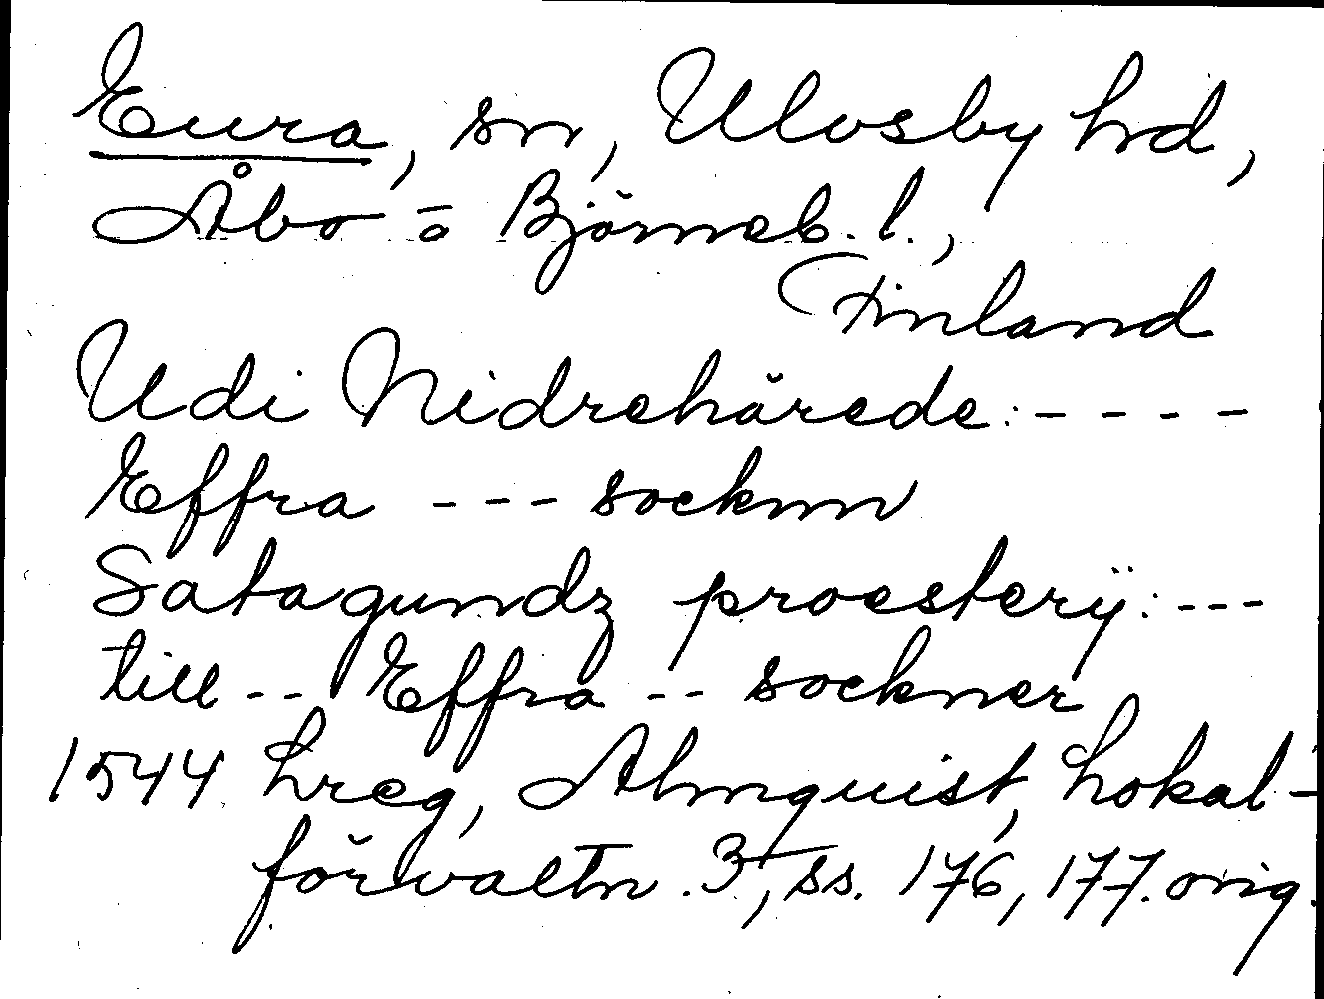 Eura, sn, Ulvsby hd,
Åbo o Björneb. l.,
Finland
Udi Nidrehärede: - - - -
Effra - - - socknn
Satagundz proesterÿ: - - -
till - - Effra - - sockner
1544 hreg, Almquist, Lokal-
förvaltn. 3, ss. 176, 177. orig.